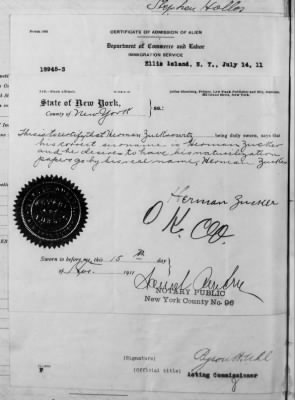 Stephen Hollos
CERTIFICATE OF ADMISSION OF ALIEN
Department of Commerce and Labor
IMMIGRATION SERVICE
19945-3
Ellis Island, N. Y., July 14, 11
State of New York,
County of New York
ss.:
This is to certify that Herman Zuckowitz being duly sworn, says that
his correct surname is Herman Zucker
and he desires to have his naturalization
papers by his real name, Herman Zucker
Herman Zucker
O K.
Sworn to before me, this 15 th day
of Nov. 1911
NOTARY PUBLIC
New York County No. 96
(Signature)
Byron H Uhl
(Official title)
Acting Commissioner